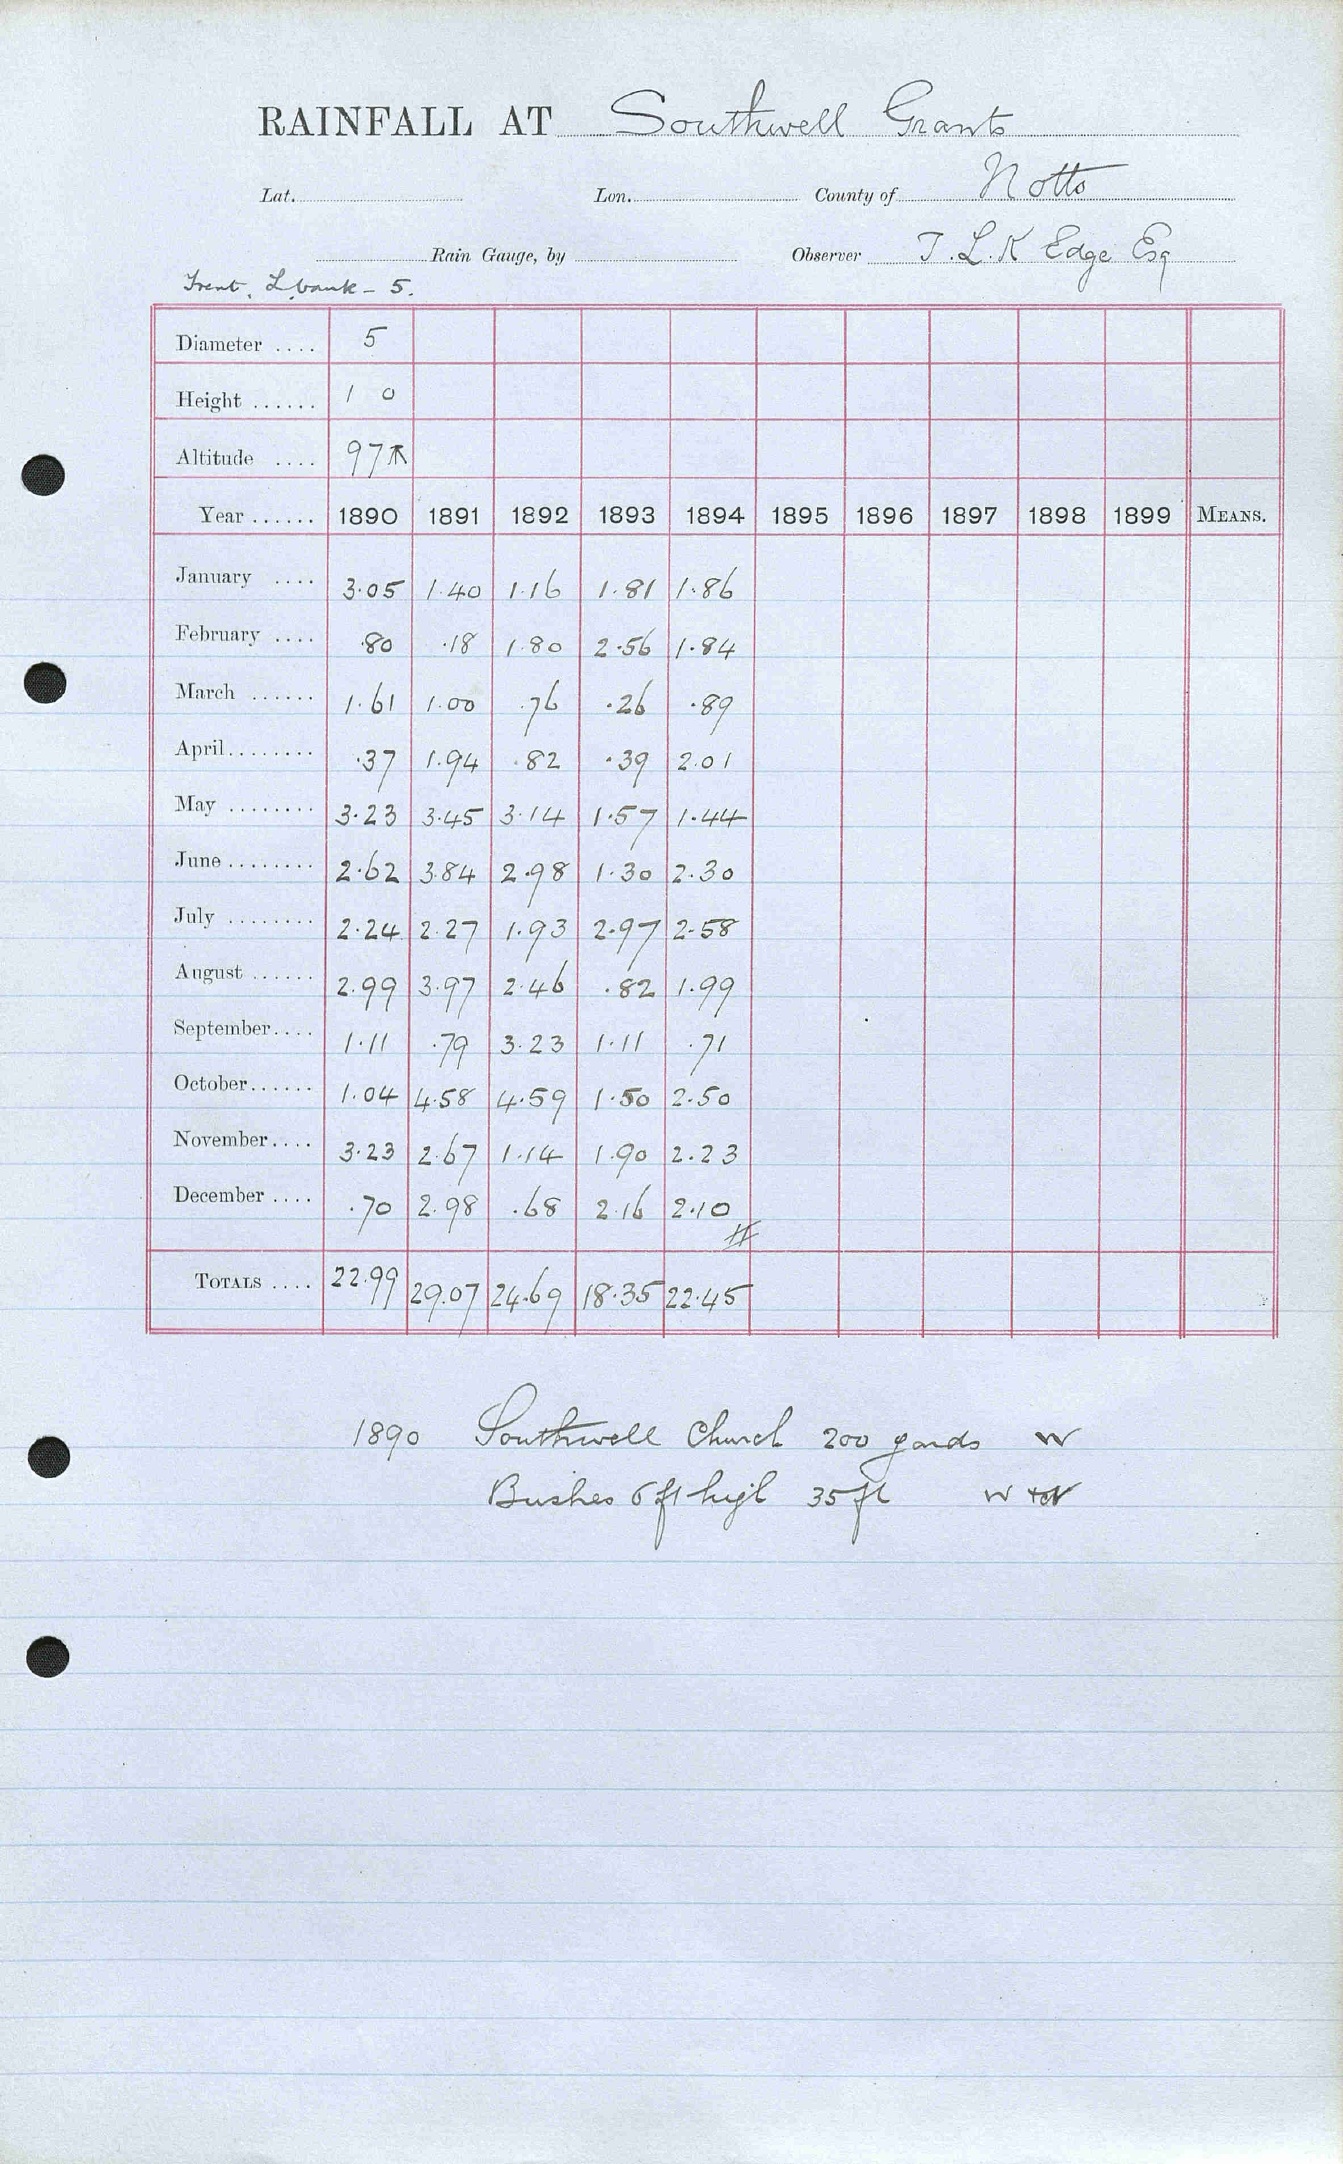 RAINFALL AT Southwell Grants
Lat. Lon. County of Notts
Rain Gauge, by Observer T. L. K Edge Esq
Trent, L bank - 5.
Diameter .... 5
Height ...... 1 0
Altitude .... 97
Year ...... 1890 1891 1892 1893 1894 1895 1896 1897 1898 1899 MEANS.
January .... 3.05 1.40 1.16 1.81 1.86
February .... .80 .18 1.80 2.56 1.84
March ...... 1.61 1.00 .76 .26 .89
April........ .37 1.94 .82 .39 2.01
May ........ 3.23 3.45 3.14 1.57 1.44
June ........ 2.62 3.84 2.98 1.30 2.30
July ........ 2.24 2.27 1.93 2.97 2.58
August ...... 2.99 3.97 2.46 .82 1.99
September.... 1.11 .79 3.23 1.11 .71
October...... 1.04 4.58 4.59 1.50 2.50
November.... 3.23 2.67 1.14 1.90 2.23
December .... .70 2.98 .68 2.16 2.10
TOTALS .... 22.99 29.07 24.69 18.35 22.45
1890 Southwell Church 200 yards W
Bushes 6 ft high 35 ft W